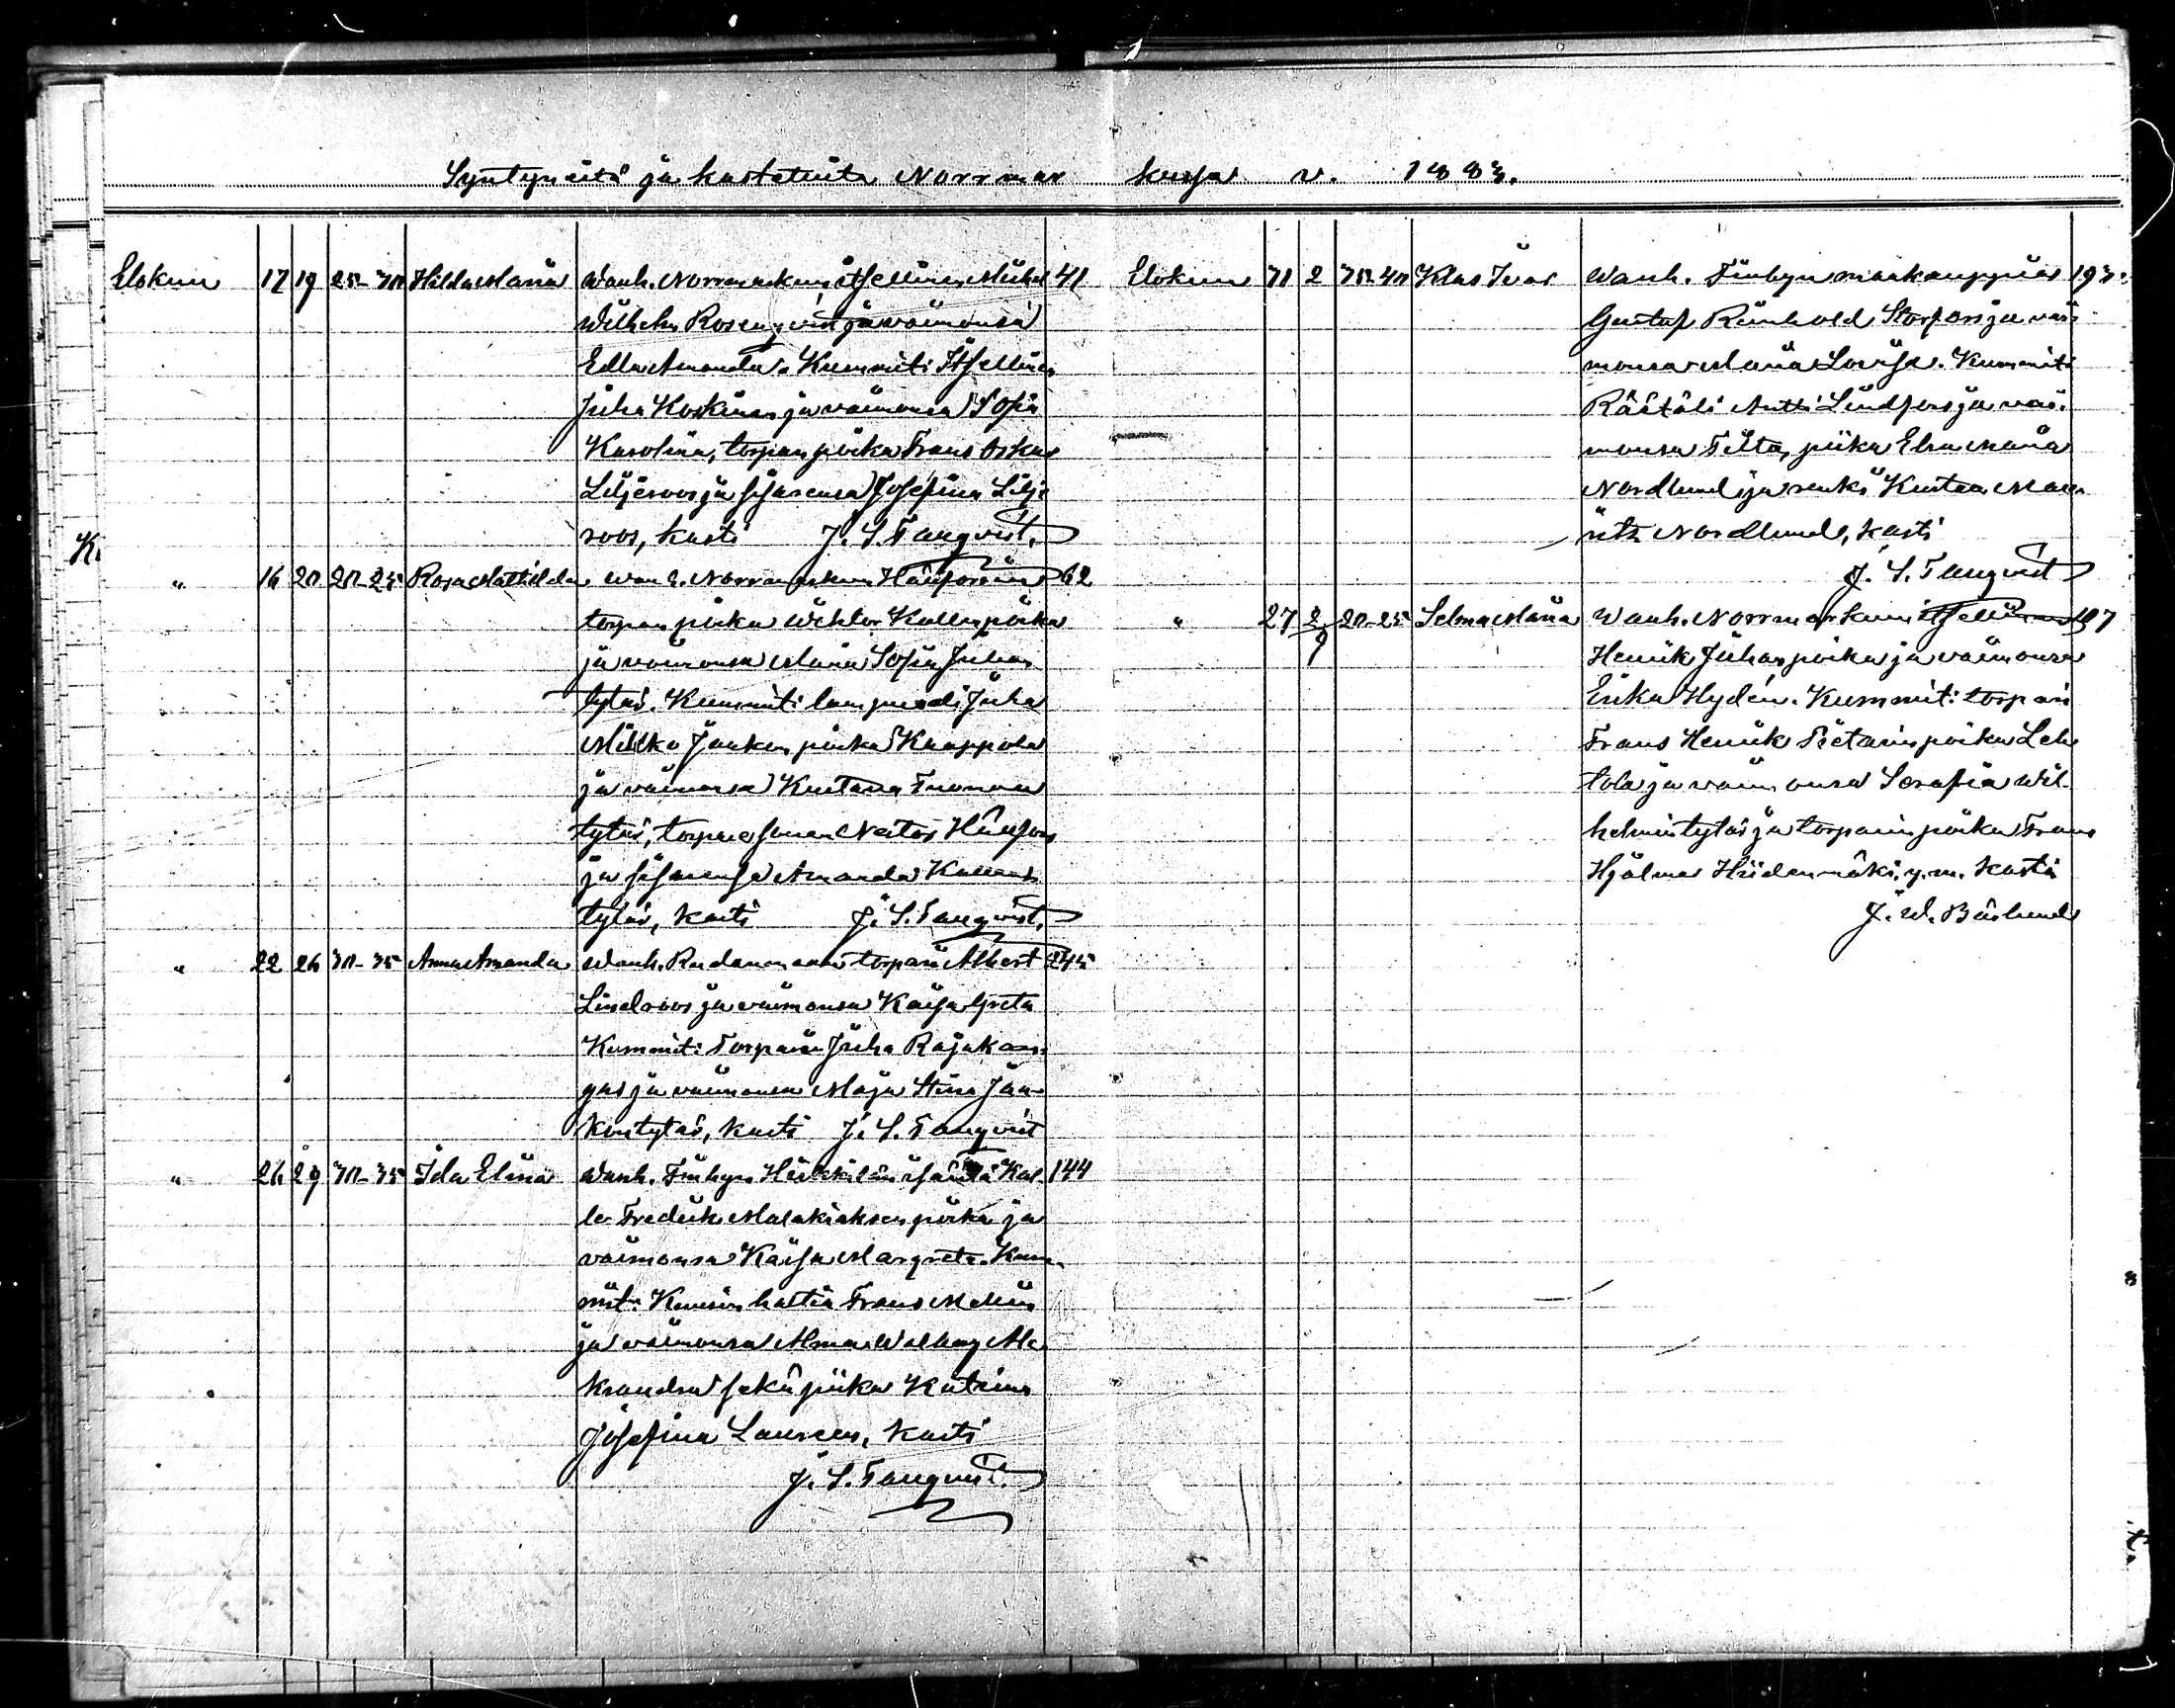 Syntyneitä ja kastetuita Norrmar kussa v. 1883.
Elokuu 17 19 25-30 Hilda Maria Wanh. Norrmarkun itsellinen Mikael 41
Wilhelm Rosenqvist ja vaimonsa
Edla Amanda. Kummit: Itsellinen
Juha Koskinen ja vaimonsa Sofia
Karolina, torpan poika Frans Oskar
Liljeroos ja sisarensa Josefina Lilje
roos, kasti J. S. Tanqvist.
" 16 20 20-25 Rosa Mathilda Wanh. Norrmarkun Hänforsin 62
torpan poika Wihtor Kallenpoika
ja vaimonsa Maria Sofia Juhan
tytär. Kummit: lampuodi Juha
Mikko Jaakonpoika Knappola
ja vaimonsa Kustaava Tuomaan
tytär, torparin Nestor Hänfors
ja sisarensa Amanda Kallen
tytär, kasti J. S. Tanqvist.
" 22 26 30-35 Anna Amanda Wanh. Rudanmaan torpari Albert 245
Lindroos ja vaimonsa Kaisa Greta
Kummit: Torpari Juha Rajakan
gas ja vaimonsa Maja Stina Jaa-
kontytär, kasti J. S. Tanqvist
" 26 29 30-35 Ida Elina Wanh. Finbyn Heikkilän isäntä Kal 144
le Fredrik Malakiaksenpoika ja
vaimonsa Kaisa Margreta. Kum
mit: Kruunin haltia Frans Melin
ja vaimonsa Alma Walborg Ale
ksandra sekä piika Katrina
Josefina Laurcen, kasti
J. S. Tanqvist.
Elokuu 31 2 35-40 Klas Ivar Wanh. Finbyn maakauppias 193.
Gustaf Reinhold Storfors ja vai
monsa Maria Lovisa. Kummit:
Räätäli Antti Lindfors ja vai-
monsa Tilta, piika Elsa Maria
Nordlund ja renki Kustaa Mau
ritz Nordlund, kasti
J. S. Tanqvist
" 27 2/9 20-25 Selma Maria Wanh. Norrmarkun itsellinen 107
Henrik Juhanpoika ja vaimonsa
Erika Hydén. Kummit: torpari
Frans Henrik Pietarinpoika Leh
tola ja vaimonsa Serafia Wil
helmintytär ja torparinpoika Frans
Hjalmar Hiidenmäki, y. m. kasti
J. W. Bäslund